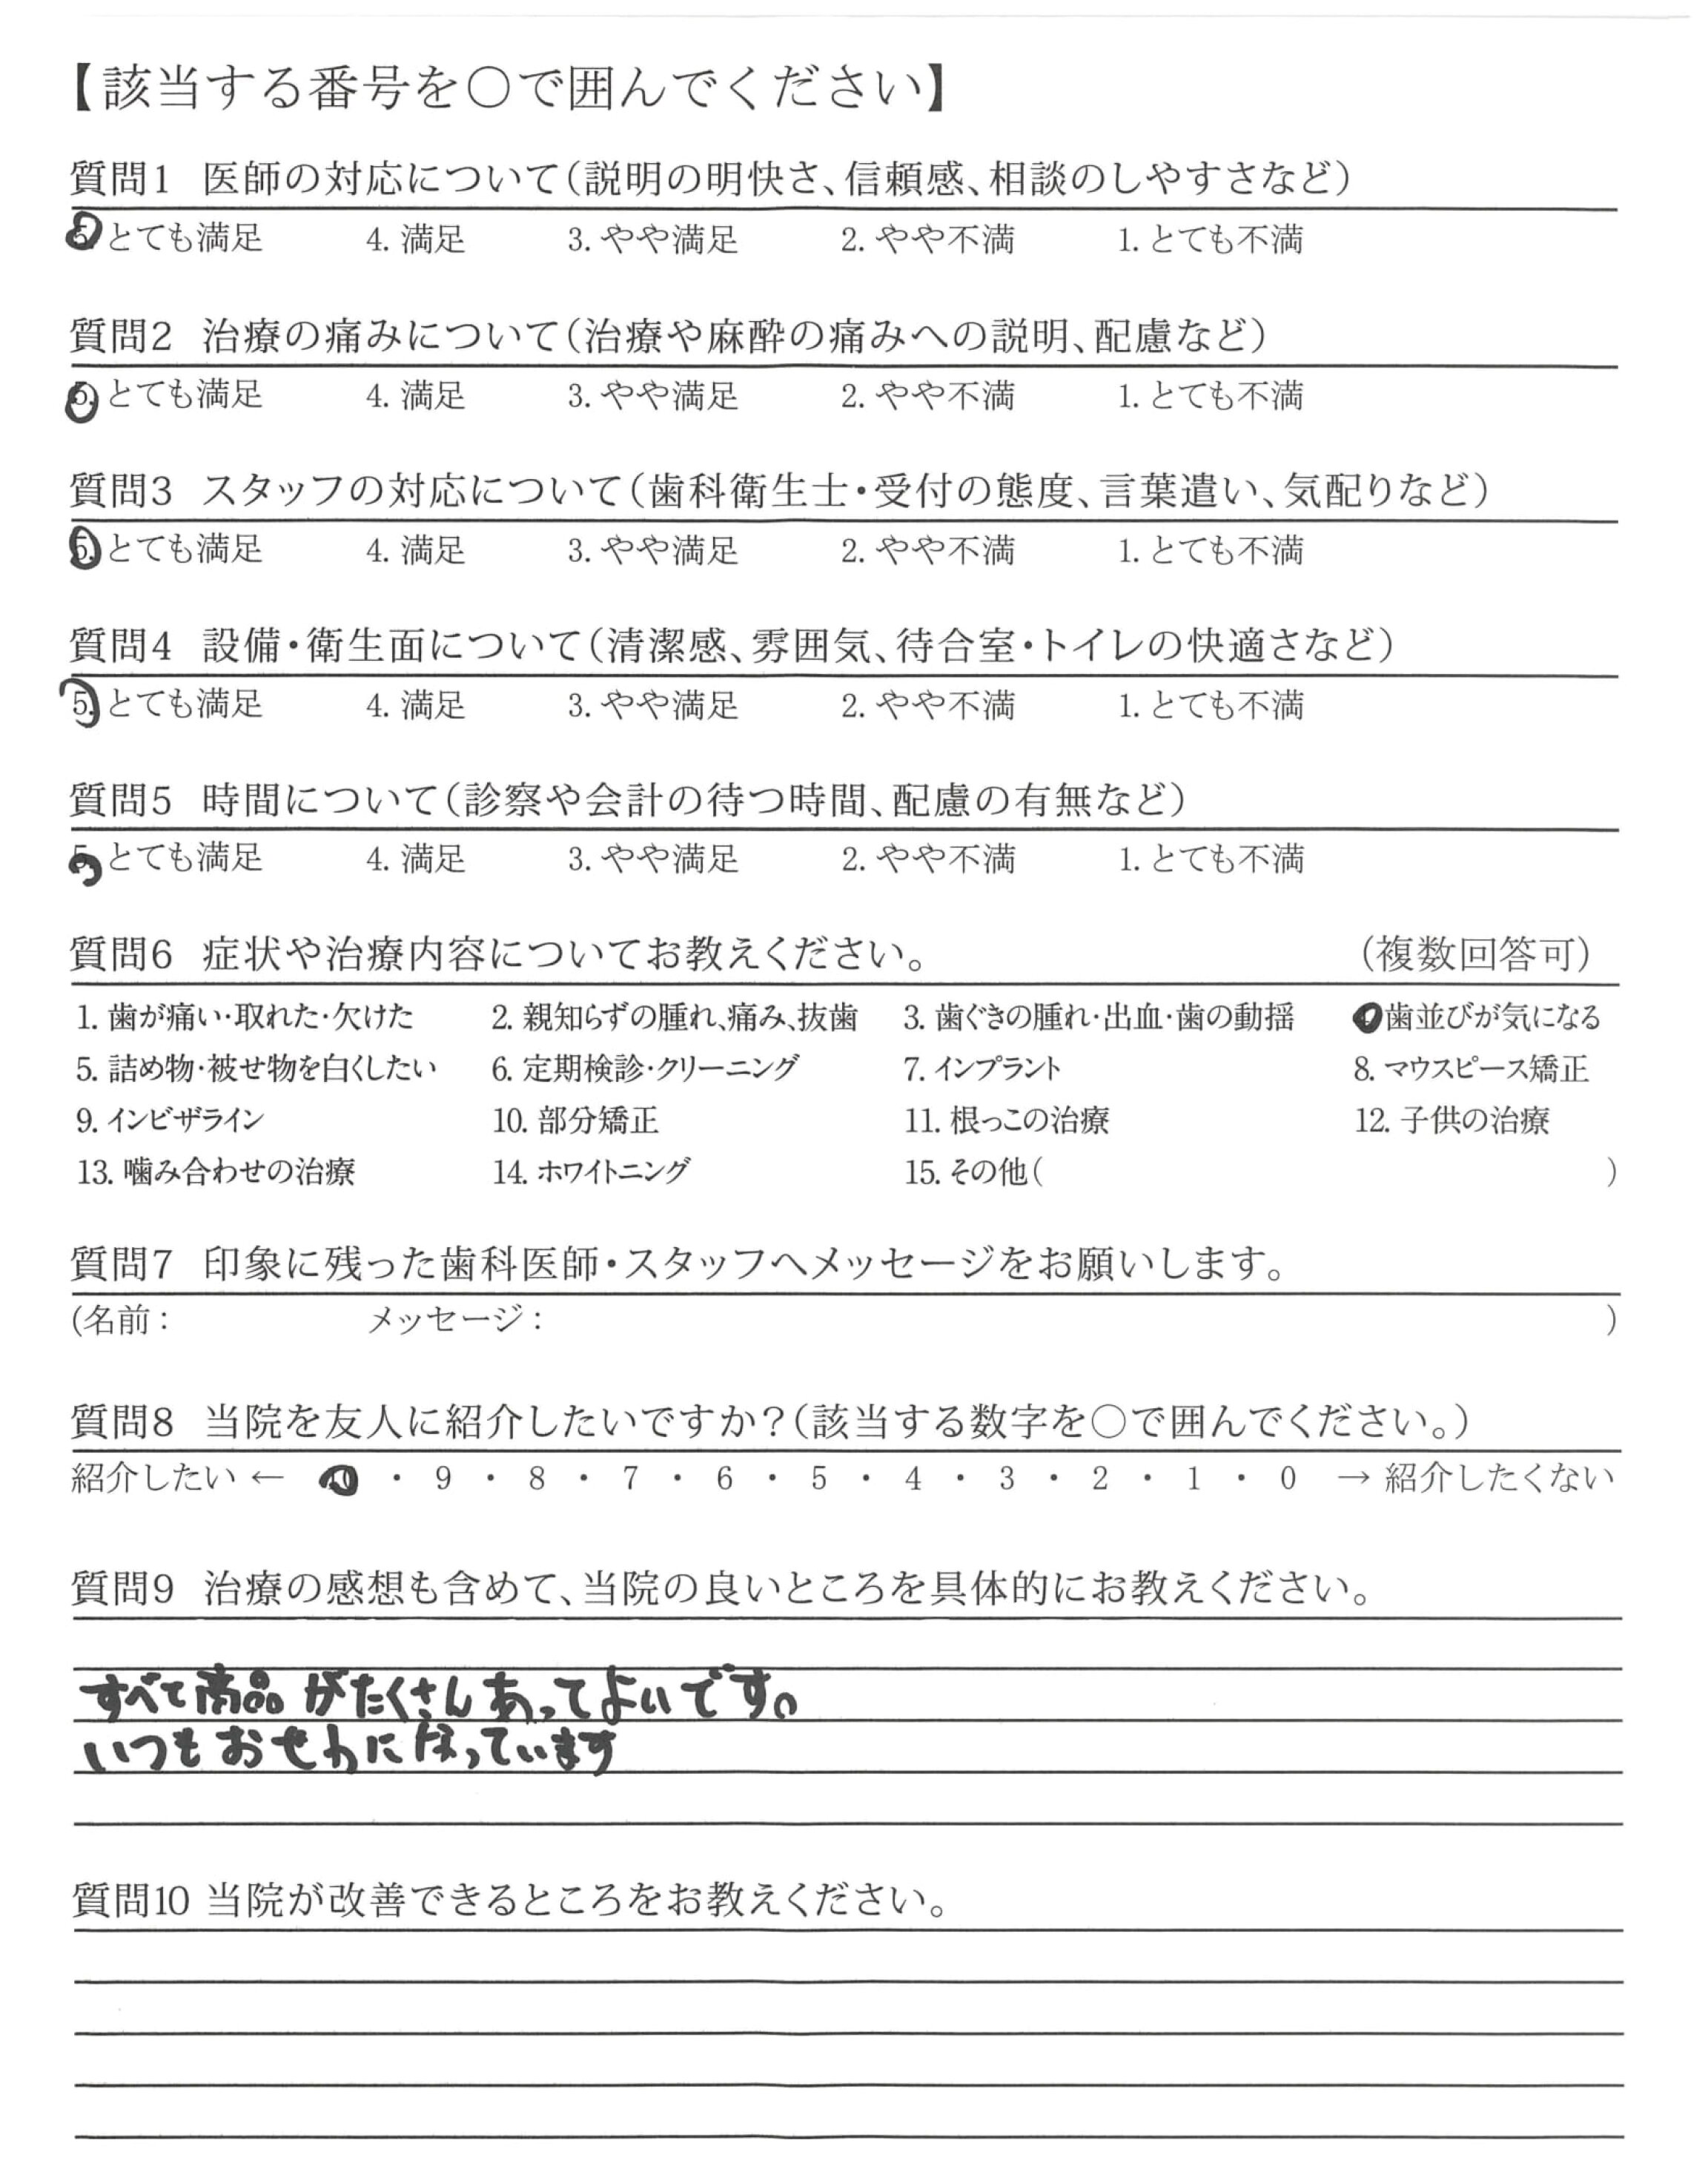 【該当する番号を○で囲んでください】
質問1 医師の対応について(説明の明快さ、信頼感、相談のしやすさなど)
5. とても満足 4. 満足 3. やや満足 2. やや不満 1. とても不満
質問2 治療の痛みについて(治療や麻酔の痛みへの説明、配慮など)
5. とても満足 4. 満足 3. やや満足 2. やや不満 1. とても不満
質問3 スタッフの対応について(歯科衛生士・受付の態度、言葉遣い、気配りなど)
5. とても満足 4. 満足 3. やや満足 2. やや不満 1. とても不満
質問4 設備・衛生面について(清潔感、雰囲気、待合室・トイレの快適さなど)
5. とても満足 4. 満足 3. やや満足 2. やや不満 1. とても不満
質問5 時間について(診察や会計の待つ時間、配慮の有無など)
5. とても満足 4. 満足 3. やや満足 2. やや不満 1. とても不満
質問6 症状や治療内容についてお教えください。 (複数回答可)
1. 歯が痛い・取れた・欠けた 2. 親知らずの腫れ、痛み、抜歯 3. 歯ぐきの腫れ・出血・歯の動揺 4. 歯並びが気になる
5. 詰め物・被せ物を白くしたい 6. 定期検診・クリーニング 7. インプラント 8. マウスピース矯正
9. インビザライン 10. 部分矯正 11. 根っこの治療 12. 子供の治療
13. 噛み合わせの治療 14. ホワイトニング 15. その他( )
質問7 印象に残った歯科医師・スタッフへメッセージをお願いします。
(名前: メッセージ: )
質問8 当院を友人に紹介したいですか?(該当する数字を○で囲んでください。)
紹介したい ← 10 ・ 9 ・ 8 ・ 7 ・ 6 ・ 5 ・ 4 ・ 3 ・ 2 ・ 1 ・ 0 → 紹介したくない
質問9 治療の感想も含めて、当院の良いところを具体的にお教えください。
すべて商品がたくさんあってよいです。
いつもおせわになっています
質問10 当院が改善できるところをお教えください。